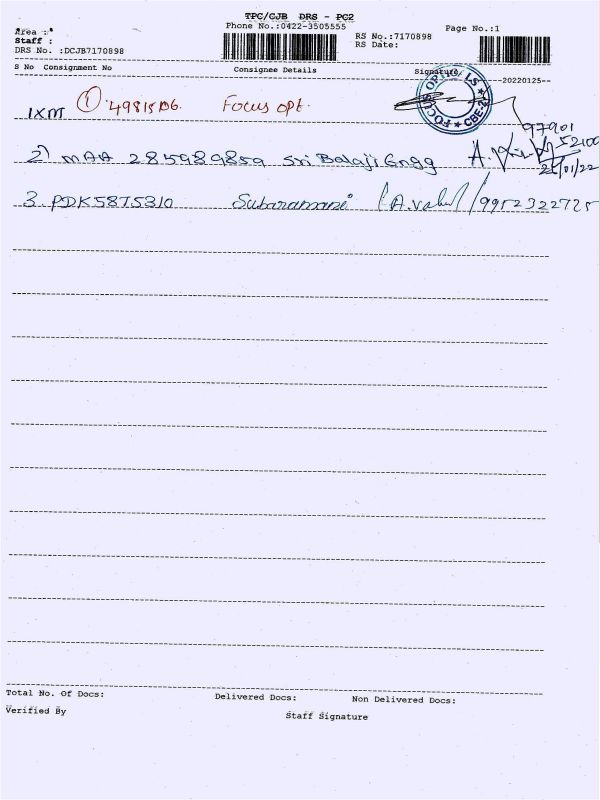 TPC/CJB DRS - PC2
Phone No.:0422-3505555
Area :
Staff :
DRS No. :DCJB7170898
RS No.:7170898
RS Date:
Page No.:1
S No Consignment No Consignee Details Signature
--20220125--
IXM ① 49815106 Focus opt.
FOCUS OPTICALS ★ CBE-2 ★
97901
52100
2) MAA 285989859 Sri Balaji Engg
25/01/22
3. PDK5875310 Subramani (A.Vahul / 9952322725
Total No. Of Docs: Delivered Docs: Non Delivered Docs:
Verified By Staff Signature